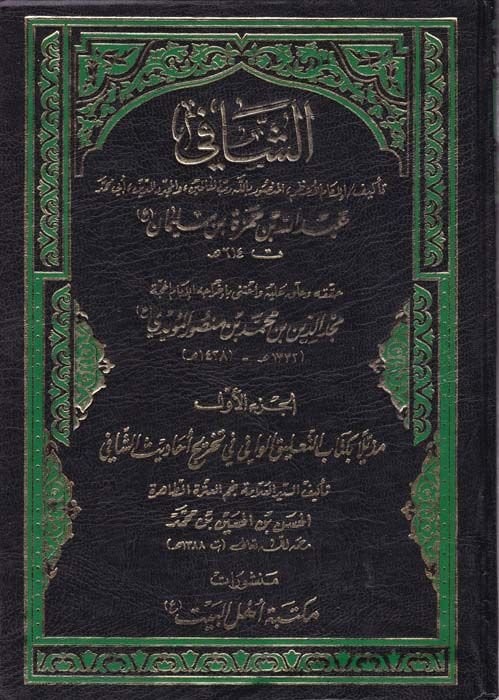 الشافي
تأليف/ الإمام الأعظم، المنصور بالله رب العالمين، والمجدد للدين، أبي محمد
عبدالله بن حمزة بن سليمان (ع)
ت ٦١٤ هـ
حققه وعلق عليه واعتنى بإخراجه الإمام الحجة
مجدالدين بن محمد بن منصور المؤيدي (ع)
(١٣٣٢هـ - ١٤٢٨هـ)
الجزء الأول
مذيلاً بكتاب التعليق الوافي في تخريج أحاديث الشافي
تأليف السيد العلامة نجم العترة الطاهرة
الحسن بن الحسين بن محمد
رحمه الله تعالى (ت ١٣٨٨هـ)
منشورات
مكتبة أهل البيت (ع)